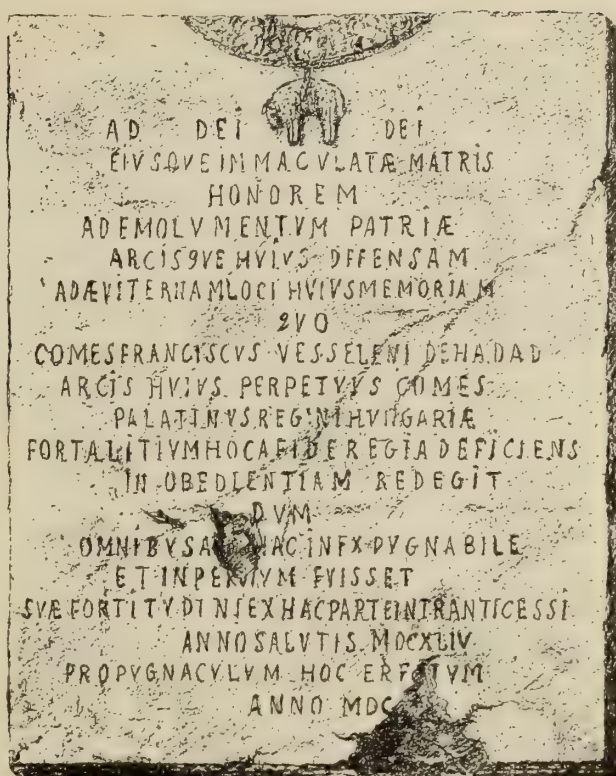 AD DEI DEI
EIVSQVE IMMACVLATÆ MATRIS
HONOREM
AD EMOLVMENTVM PATRIÆ
ARCISQVE HVIVS DEFENSAM
AD ÆVITERNAM LOCI HVIVS MEMORIAM
QVO
COMES FRANCISCVS VESSELENI DE HADAD
ARCIS HVIVS PERPETVVS COMES
PALATINVS REGNI HVNGARIÆ
FORTALITIVM HOC A FIDE REGIA DEFICIENS
IN OBEDLENTIAM REDEGIT
DVM
OMNIBVS HAC INEXPVGNABILE
ET INPERVIVM FVISSET
SVÆ FORTITVDINI SEX HAC PARTE INTRANTI CESSI
ANNO SALVTIS MDCXLIV
PROPVGNACVLVM HOC ERECTVM
ANNO MDC